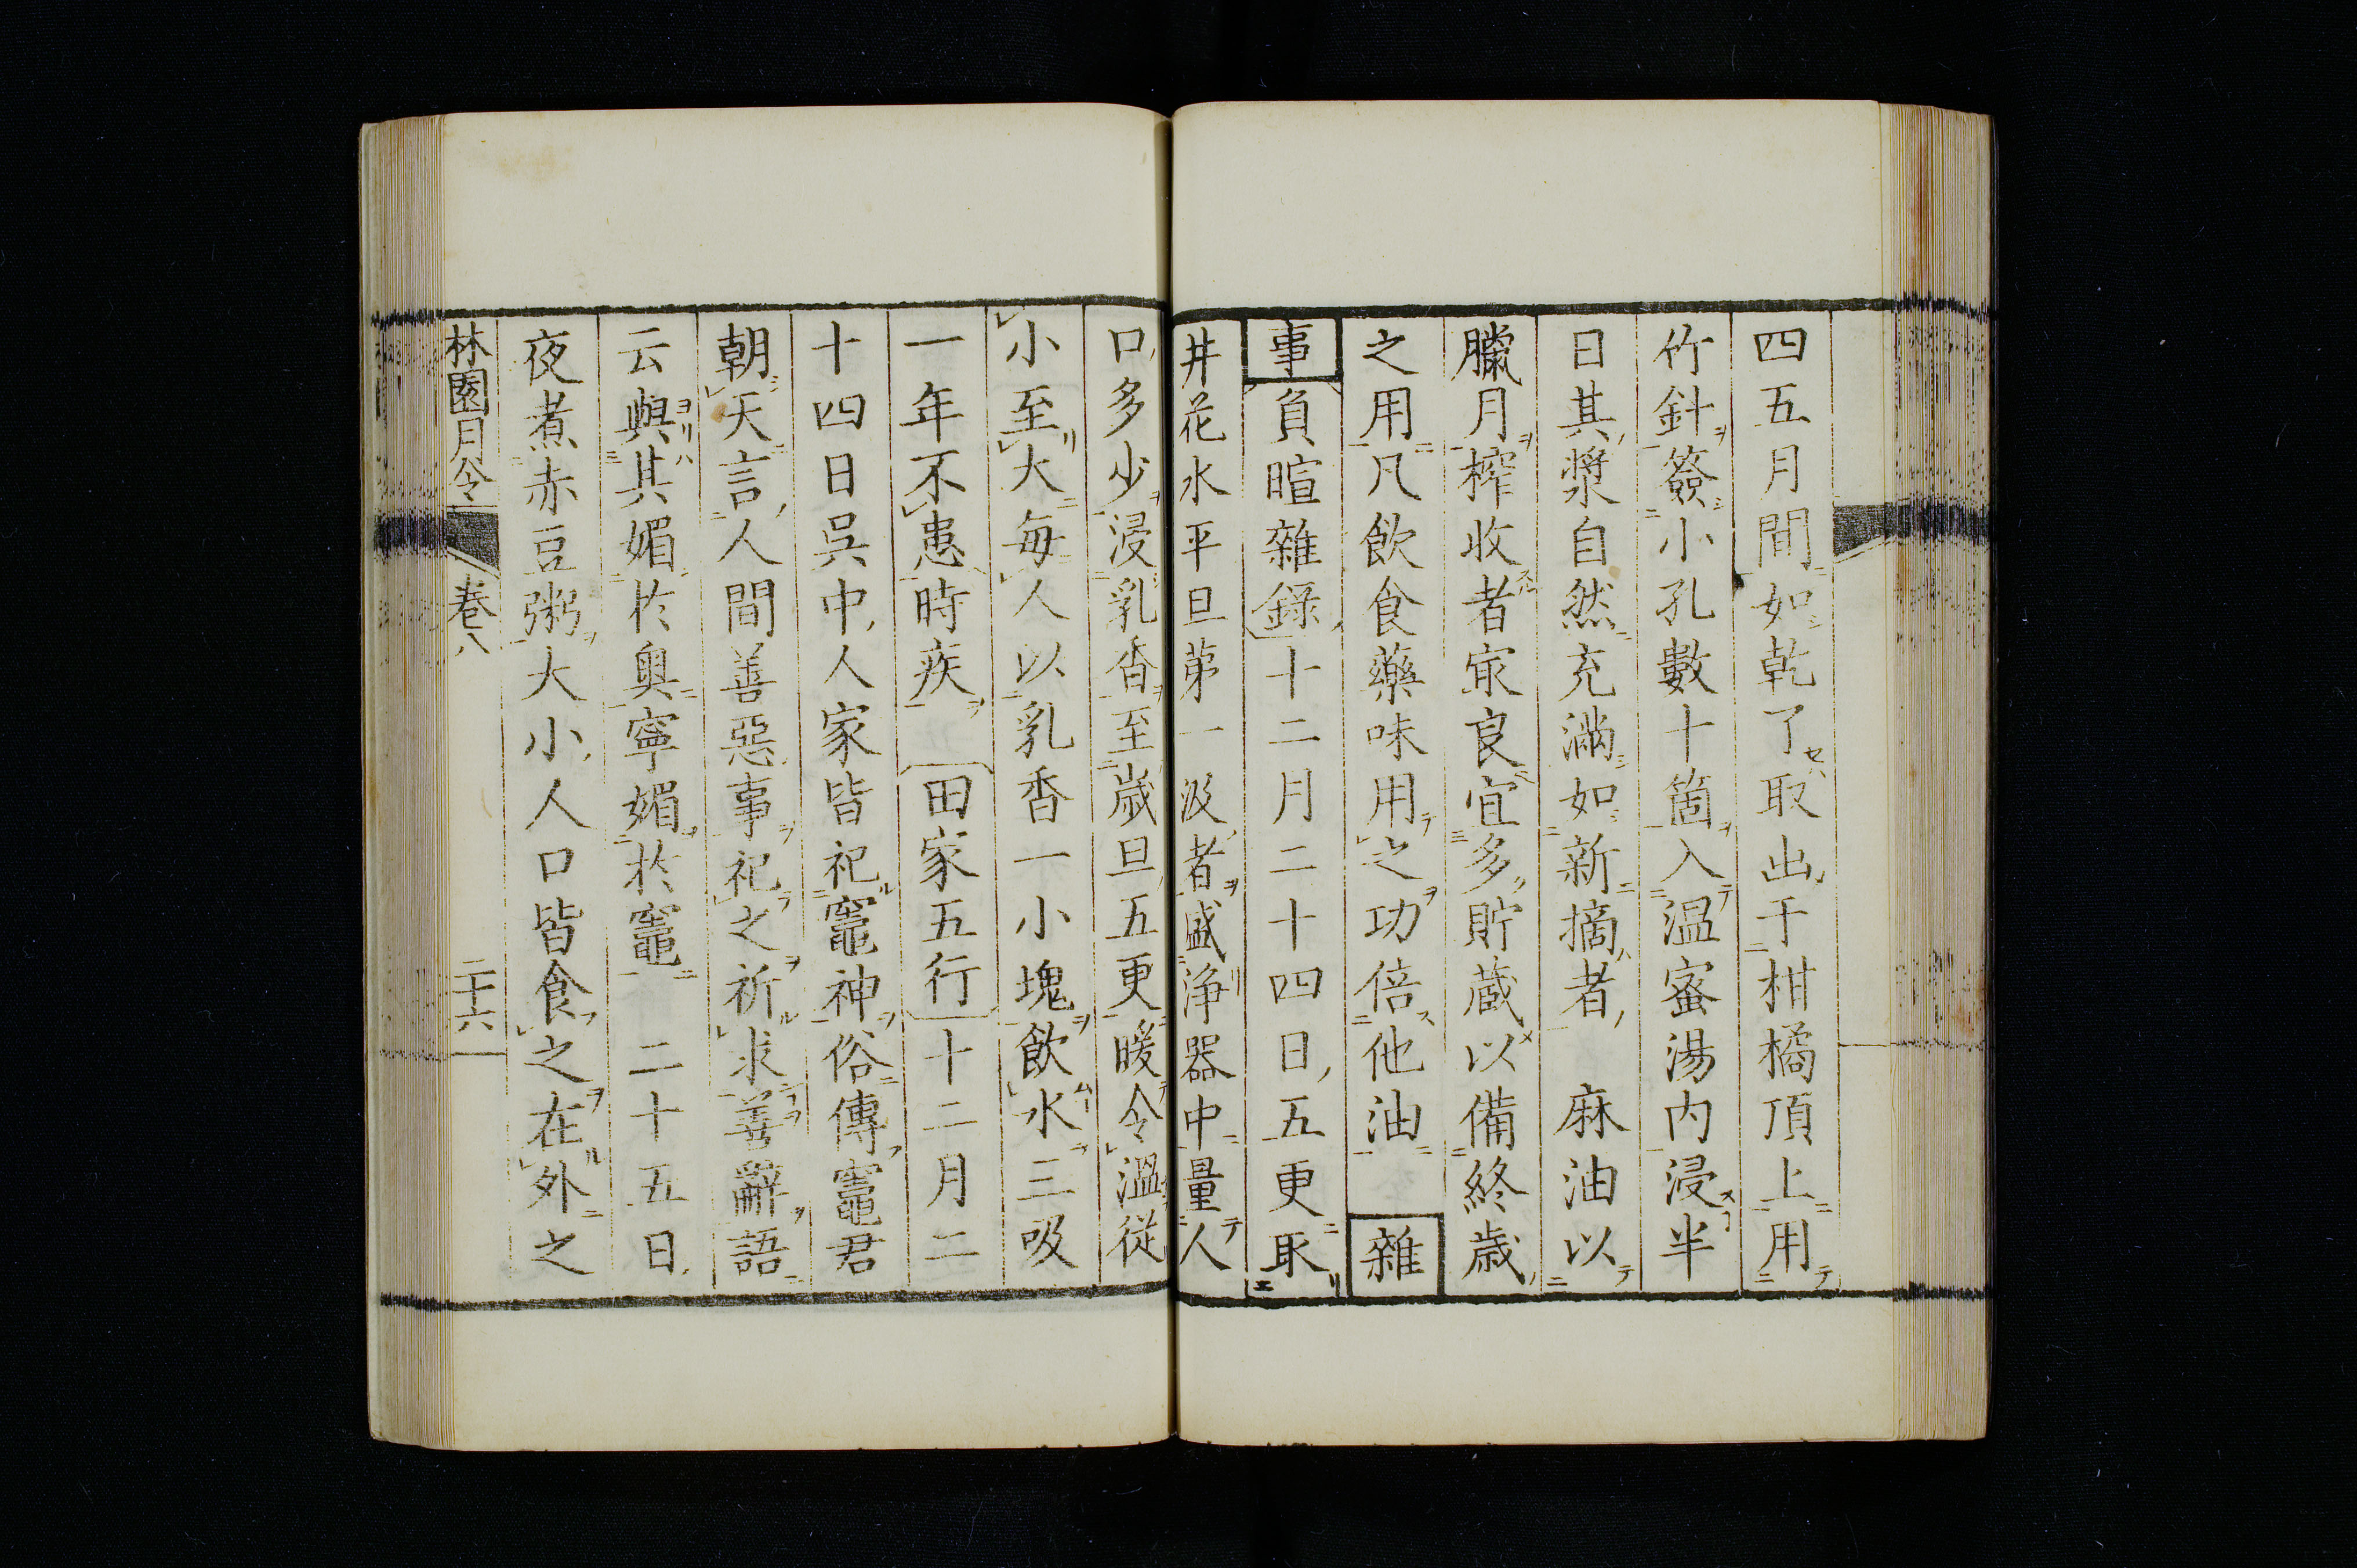 四五月間如乾了取出于柑橘頂上用
竹針簽小孔數十箇入温蜜湯内浸半
日其漿自然充滿如新摘者 麻油以
臘月榨收者冣良宜多貯蔵以備終歳
之用凡飲食藥味用之功倍他油 雜
事負暄雜錄十二月二十四日五更取
井花水平旦第一汲者盛浄器中量人
口多少浸乳香至歳旦五更暖令溫從
小至大每人以乳香一小塊飲水三吸
一年不患時疾 田家五行十二月二
十四日呉中人家皆祀竈神俗傳竈君
朝天言人間善惡事祀之祈求善辭語
云與其媚於奧寧媚於竈 二十五日
夜煮赤豆粥大小人口皆食之在外之
林園月令 卷八 二十六